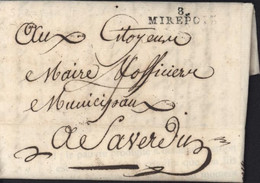 8
MIREPOIX
Aux Citoyens
Maire & officiers
Municipaux
A Saverdun